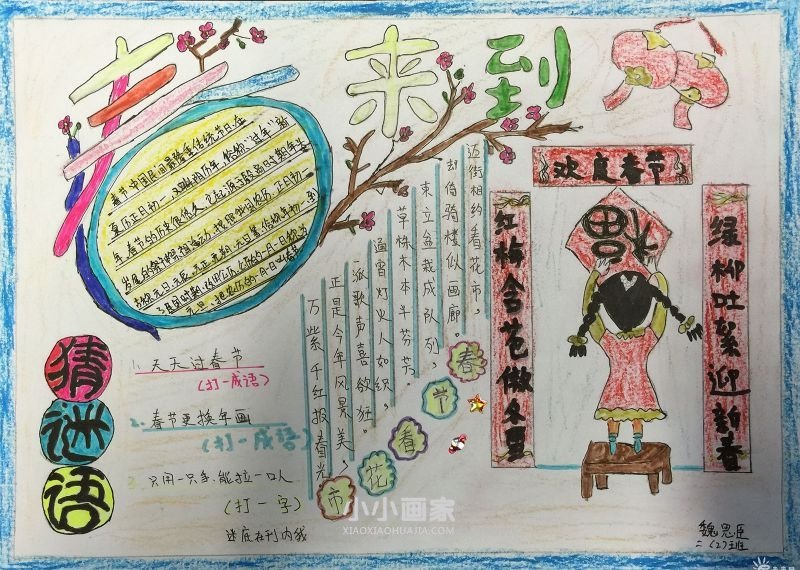 春来到
春节中国民间最隆重传统节日,在
夏历正月初一,又叫阴历年,俗称“过年”新
年。春节的历史很悠久,它起源于殷商时期年头岁
迈街相约看花市,
却倚骑楼似画廊。
束立盆栽成队列,
草株木本斗芬芳。
通宵灯火人如织,
一派歌声喜欲狂。
正是今年风景美,
万紫千红报春光
春节春花市
欢度春节
红梅含苞傲冬雪
绿柳吐絮迎新春
福
猜谜语
1. 天天过春节
(打一成语)
2. 春节更换年画
(打一成语)
只用一只手,能拉一口人
(打一字)
谜底在刊内找
魏思臣
二(2)班
小小画家
XIAOXIAOHUAJIA.COM